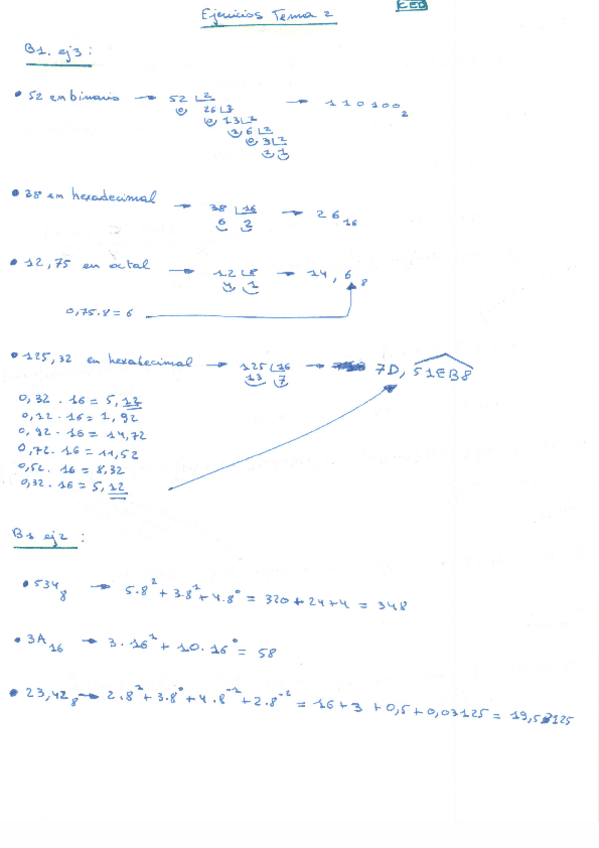 CEO
Ejercicios Tema 2
B1. ej3:
• 52 en binario → 52 | 2 → 110100₂
0 26 | 2
0 13 | 2
1 6 | 2
0 3 | 2
1 1
• 38 en hexadecimal → 38 | 16 → 26₁₆
6 2
• 12,75 en octal → 12 | 8 → 14,6₈
4 1
0,75.8=6
• 125,32 en hexadecimal → 125 | 16 → 7D, 51EB8
13 7
0,32 . 16 = 5,12
0,12 . 16 = 1,92
0,92 . 16 = 14,72
0,72 . 16 = 11,52
0,52 . 16 = 8,32
0,32 . 16 = 5,12
B1 ej2:
• 534₈ → 5.8² + 3.8¹ + 4.8⁰ = 320 + 24 + 4 = 348
• 3A₁₆ → 3.16¹ + 10.16⁰ = 58
• 23,42₈ → 2.8¹ + 3.8⁰ + 4.8⁻¹ + 2.8⁻² = 16 + 3 + 0,5 + 0,03125 = 19,53125